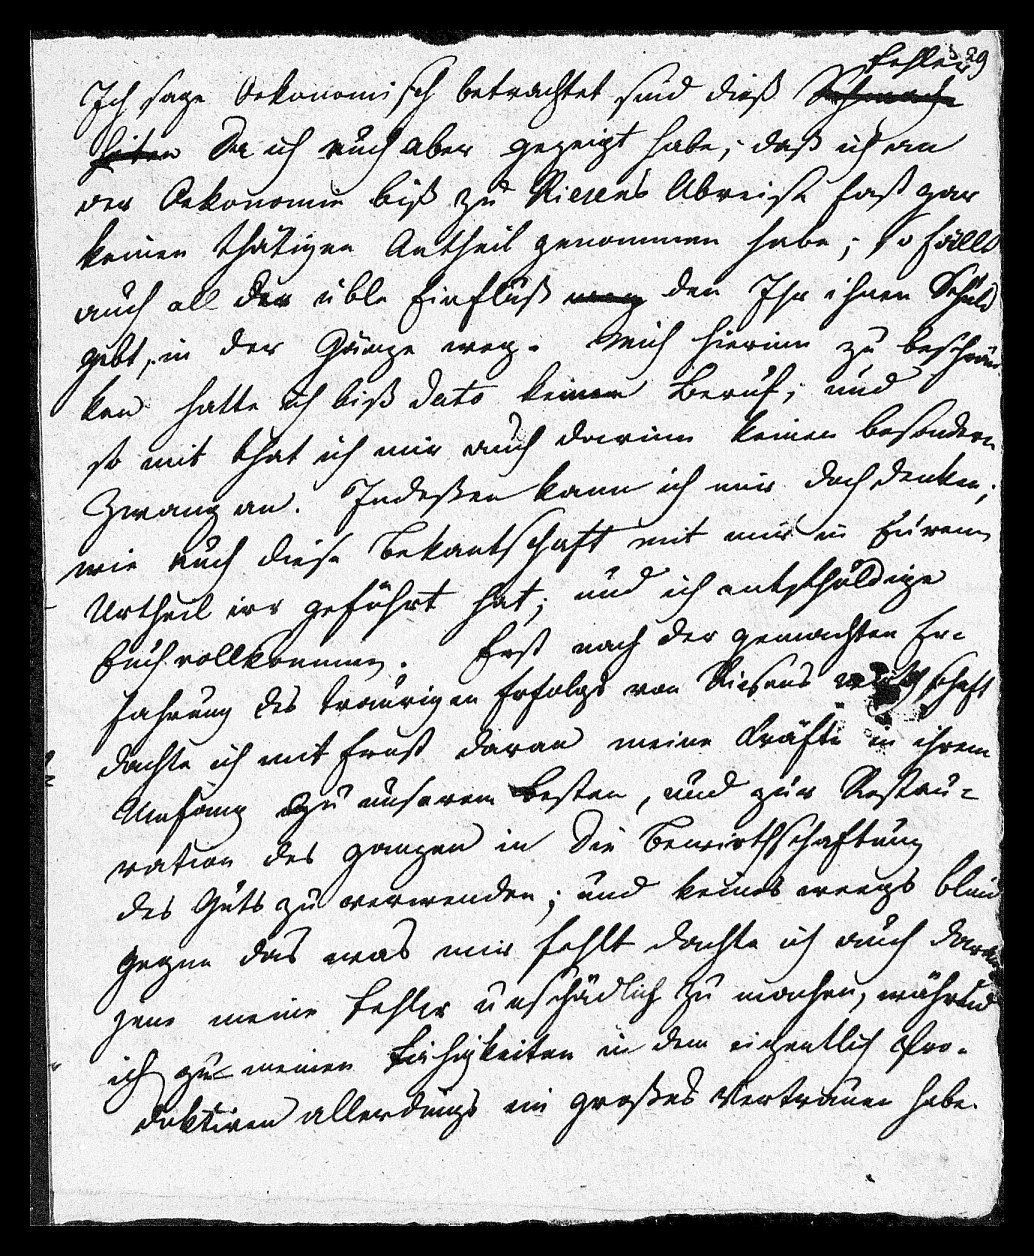 29
Fehler
Ich sage Oekonomisch betrachtet sind dieß Schwach
heiten Da ich auch aber gezeigt habe, daß ich an
der Oekonomie biß zu Riesens Abreise fast gar
keinen thätigen Antheil genommen habe; so fällt
auch all der üble Einfluß weg den Ihr ihnen Schuld
gebt, in der Gänze weg. Mich hierinn zu beschrän
ken hatte ich biß dato keinen Beruf; und
so mit that ich mir auch darinn keinen besondern
Zwang an. Indeßen kann ich mir doch denken,
wie auch diese Bekantschaft mit mir in Eurem
Urtheil irr geführt hat; und ich entschuldige
Euch vollkommen. Erst nach der gemachten Er=
fahrung des traurigen Erfolgs von Riesens wirthschaft
dachte ich mit Ernst daran meine Kräfte in ihrem
Umfang zu unserem Besten, und zur Restau=
ration des ganzen in die Bewirthschaftung
des Guts zu verwenden; und keines weegs blind
gegen das was mir fehlt dachte ich auch daran
jene meine Fehler unschädlich zu machen, während
ich zu meinen Fähigkeiten in dem eigentlich Pro=
duktiven allerdings ein großes Vertrauen habe.